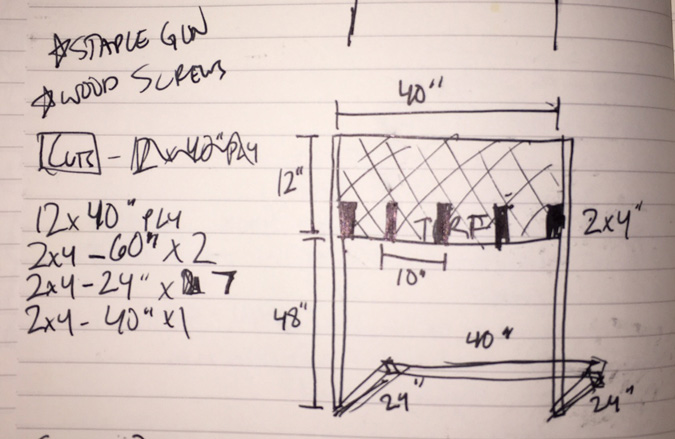 ☆STAPLE GUN
☆WOOD SCREWS
CUTS -
12x40" PLY
2x4 - 60" x 2
2x4 - 24" x 7
2x4 - 40" x 1
40"
12"
TURF
2x4"
10"
48"
40"
24"
24"